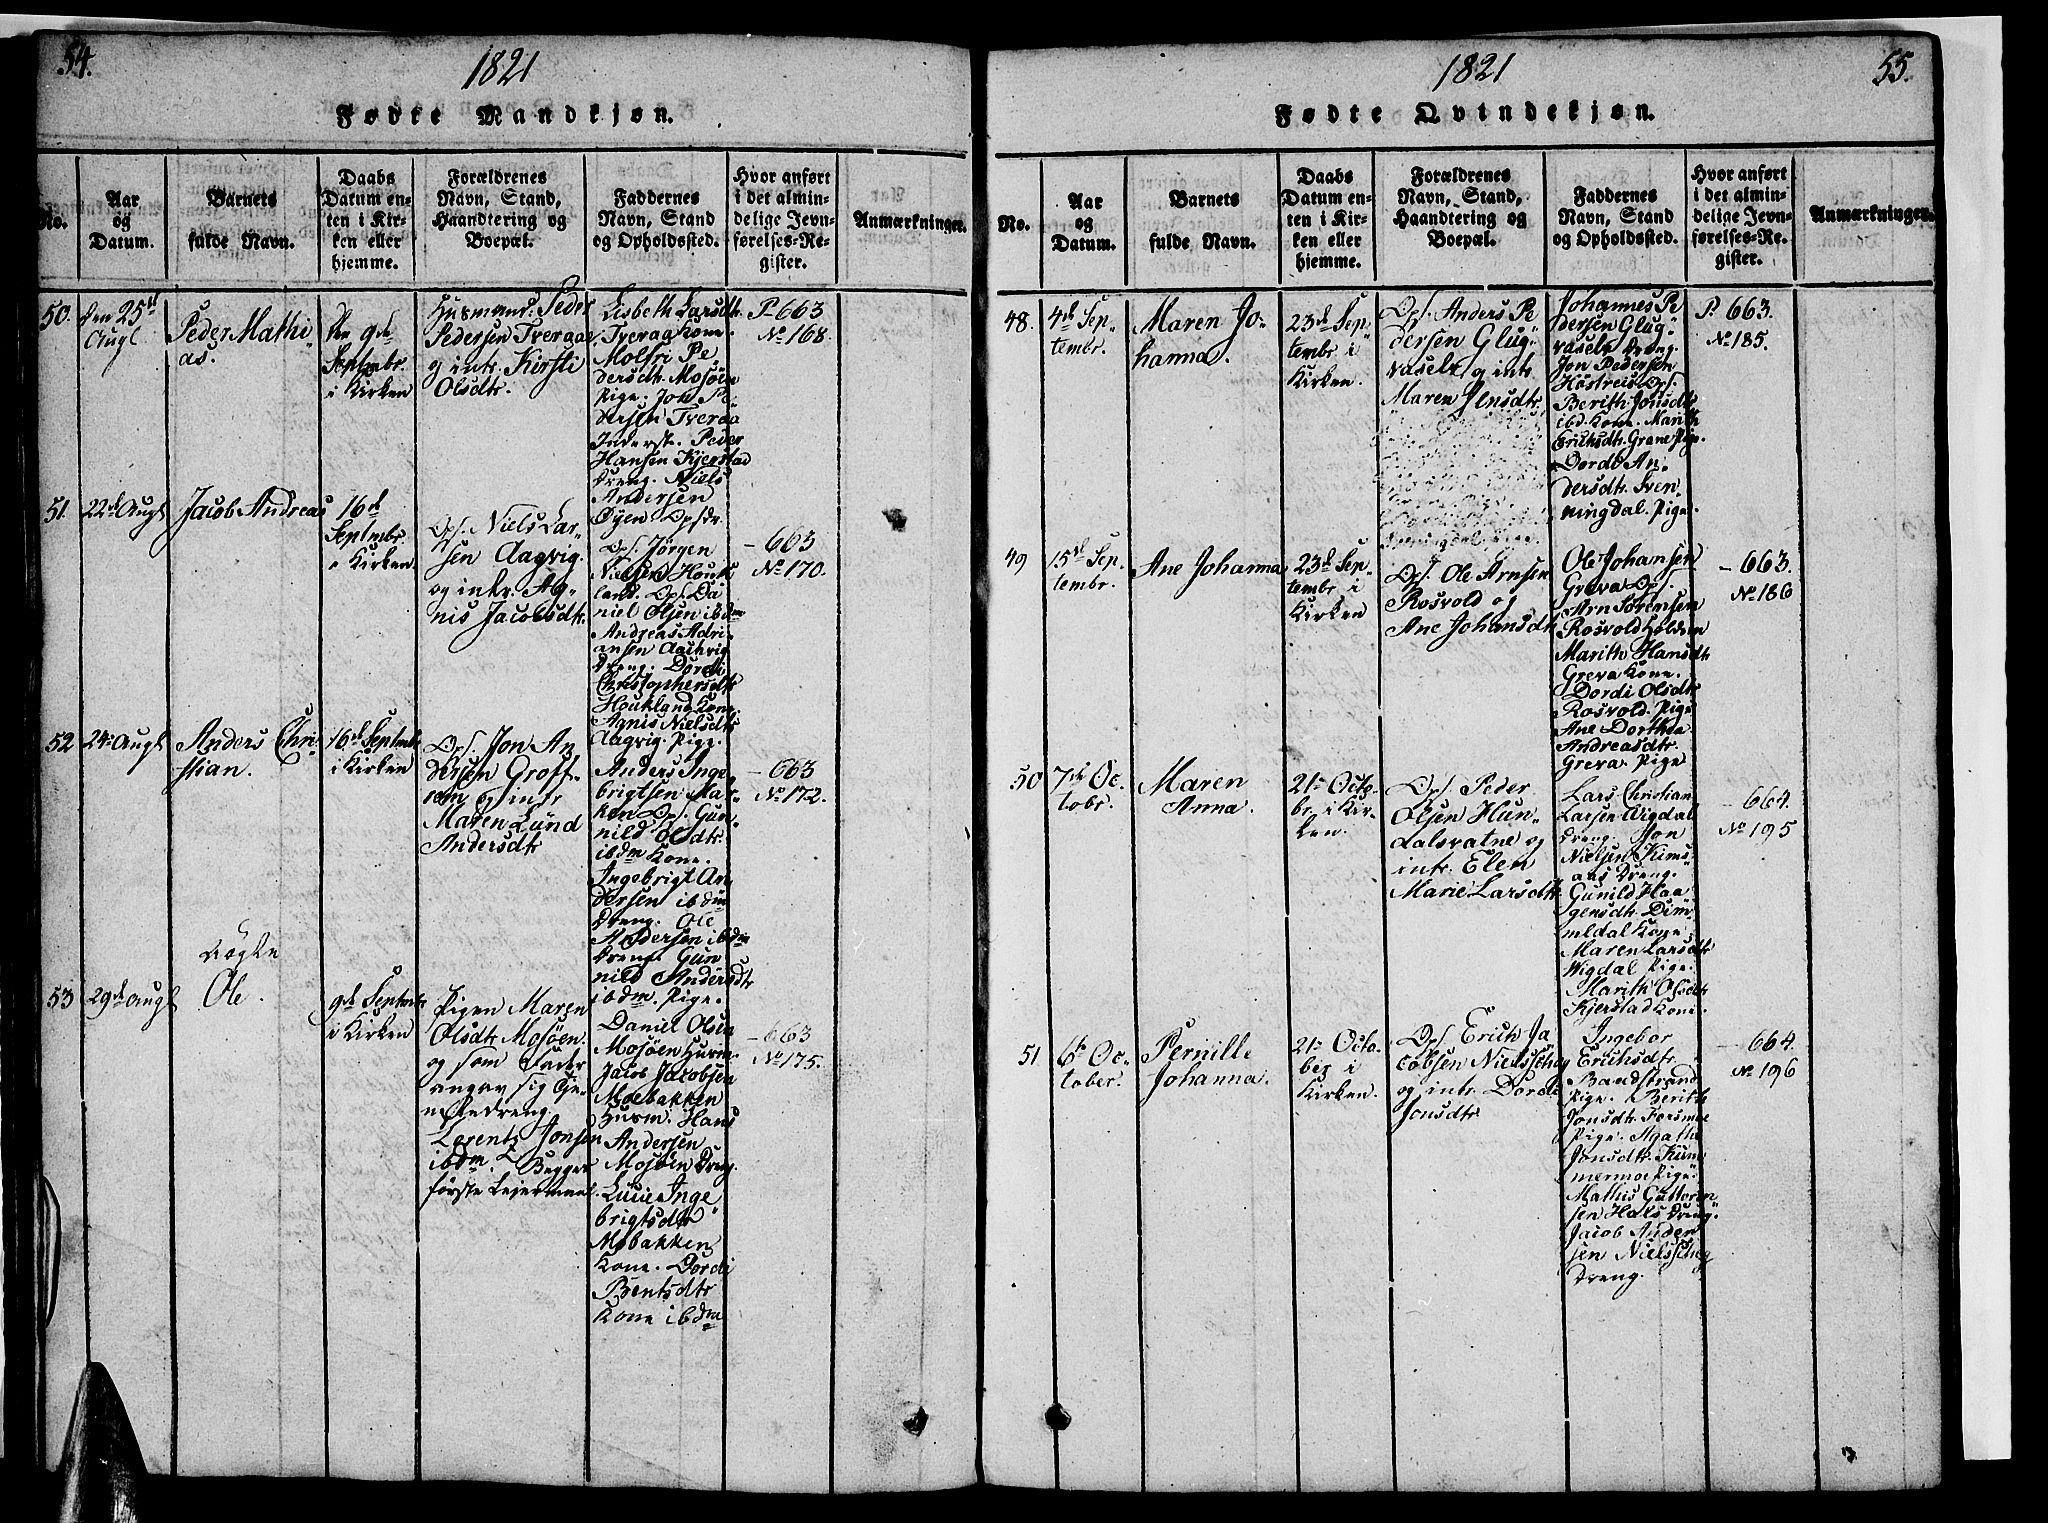 54.
1821
Fødte Mandkjøn.
No.
Aar
og
Datum.
Barnets
fulde Navn.
Daabs
Datum en-
ten i Kir-
ken eller
hjemme.
Forældrenes
Navn, Stand,
Haandtering og
Boepæl.
Faddernes
Navn, Stand
og Opholdssted.
Hvor anført
i det almin-
delige Jevn-
førelses-Re-
gister.
Anmærkninger.
50.
den 25de
Augt
Peder Mathi
as.
den 9de
Septembr.
i Kirken
Husmand. Peder
Pedersen Tveraae
og intr. Kirsti
Olsdtr.
Lisbeth Larsdtr
Tveraa Kone.
Molfri Pe
dersdtr. Mosöen
Pige. Jon Pe
dersen Tveraa
Inderst. Peder
Hansen Kjerstad
Dreng. Niels
Andersen
Öyen Opsdr.
P. 663
No 168.
51
22de Augt
Jacob Andreas
16de
Septmbr.
i Kirken.
Ops. Niels Lar-
sen Aagvig.
og intr. Ag-
nis Jacobsdtr.
Ops. Jörgen
Nielsen Houk
land. Ops. Da
niel Olsen ibdm
Andreas Adri-
ansen Aagvig
Dreng. Dordi
Christophersdtr
Houkland Kone.
Agnis Nielsdtr
Aagvig. Pige.
- 663
No 170.
52
24de Augt
Anders Chri-
stian.
16de Septmbr
i Kirken
Ops. Jon An
dersen Groft-
rem og intr
Maren Lund
Andersdtr
Anders Inge
brigtsen Mar-
ken Ops. Gun-
nild Olsdtr.
ibdm Kone.
Ingebrigt An
dersen ibdm
Dreng. Ole
Andersen ibdm
Dreng. Gun
nild Andersdtr
ibdm. Pige.
- 663
No 172.
53
29de Augt
Uægte
Ole.
9de Septmbr
i Kirken
Pigen Maren
Olsdtr Mosöen.
og som Fader
angav sig Tje-
nestedreng.
Lorentz Jonsen
ibdm. Begges
förste Lejermaal.
Daniel Olsen
Mosöen Husm.
Jacob Jacobsen
Moebakken
Husm. Hans
Andersen
Mosöen Dreng.
Lucie Inge
brigtsdtr
Mobakken
Kone. Dordi
Bentsdtr
Kone ibdm
- 663
No 175.
55.
1821
Fødte Qvindekjøn.
No.
Aar
og
Datum.
Barnets
fulde Navn.
Daabs
Datum en-
ten i Kir-
ken eller
hjemme.
Forældrenes
Navn, Stand,
Haandtering og
Boepæl.
Faddernes
Navn, Stand
og Opholdssted.
Hvor anført
i det almin-
delige Jevn-
førelses-Re-
gister.
Anmærkninger.
48.
4de Sep-
tembr.
Maren Jo-
hanna.
23de Sep-
tembr i
Kirken.
Ops. Anders Pe
dersen Glug-
vaselv og intr.
Maren Jensdtr.
Johannes Pe
dersen Glug-
vaselv Dreng.
Jon Pedersen
Ops.
Berith Jonsdtr
ibd. Kone. Marith
Erichsdtr. Grane Pige.
Dordi An-
dersdtr. Sven-
ningdal. Pige.
P. 663.
No 185.
49
15de Sep-
tembr.
Ane Johanna
23de Sep-
tembr i
Kirken
Ops. Ole Arnsen
Rosvold og
Ane Johansdtr
Ole Johansen
Greva Ops.
Arn Sörensen
Rosvold Holdsm
Marith Hansdtr
Greva Kone.
Dordi Olsdtr
Rosvold. Pige
Ane Dorthea
Andreasdtr.
Greva. Pige
- 663.
No 186
50
7de Oc-
tobr.
Maren
Anna.
21de Octo-
br. i Kir-
ken.
Ops. Peder
Olsen Hun-
dalsvatne og
intr. Elen
Marie Larsdtr.
Lars Christian
Larsen Wigdal
Dreng. Jon
Nielsen Kims-
aas Dreng.
Gunild Haa-
gensdtr. Dim-
meldal Kone.
Maren Larsdtr
Wigdal Pige.
Marith Olsdtr
Kjerstad Kone.
- 664.
No 195
51
6te Oc-
tober.
Pernille
Johanna.
21de Octo-
ber i
Kirken.
Ops. Erich Ja
cobsen Nielsskog
og intr. Dordi
Jonsdtr
Ingebor
Erichsdtr.
Baadstrand
Pige. Berith
Jonsdtr. Forsmoe
Pige. Agathe
Jonsdtr. Kum
mermoe Pige.
Mathis Guttorm
sen Hals Dreng.
Jacob Ander
sen Nielsskog
Dreng.
- 664.
No 196